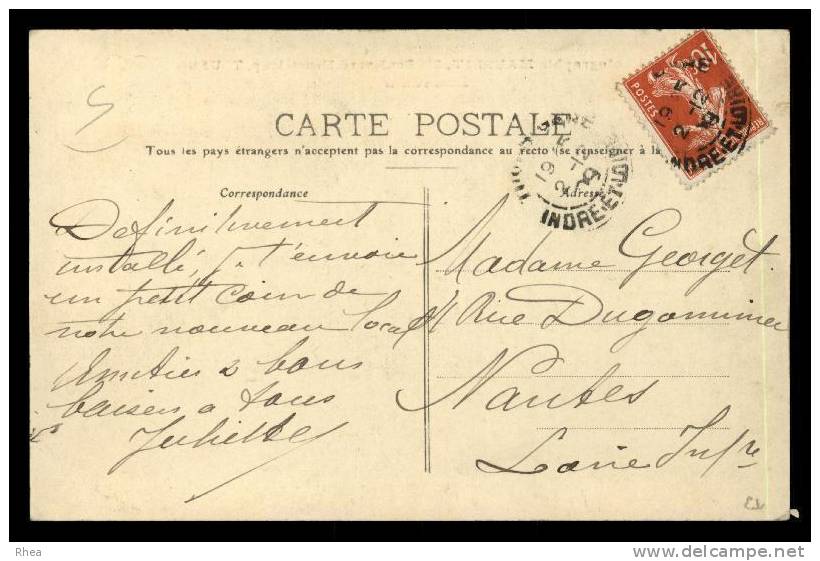 CARTE POSTALE
Tous les pays étrangers n'acceptent pas la correspondance au recto (se renseigner à la
Correspondance
Adresse
Définitivement
installé, je t'envoie
un petit coin de
notre nouveau local
Amitiés 2 bons
baisers a tous
Juliette
Madame Georget.
Rue Dugommier
Nantes
Loire Infre
10
POSTES
GARE
19
INDRE-ET-LOIRE
INDRE-ET-LOIRE
Rhea
delcampe.net